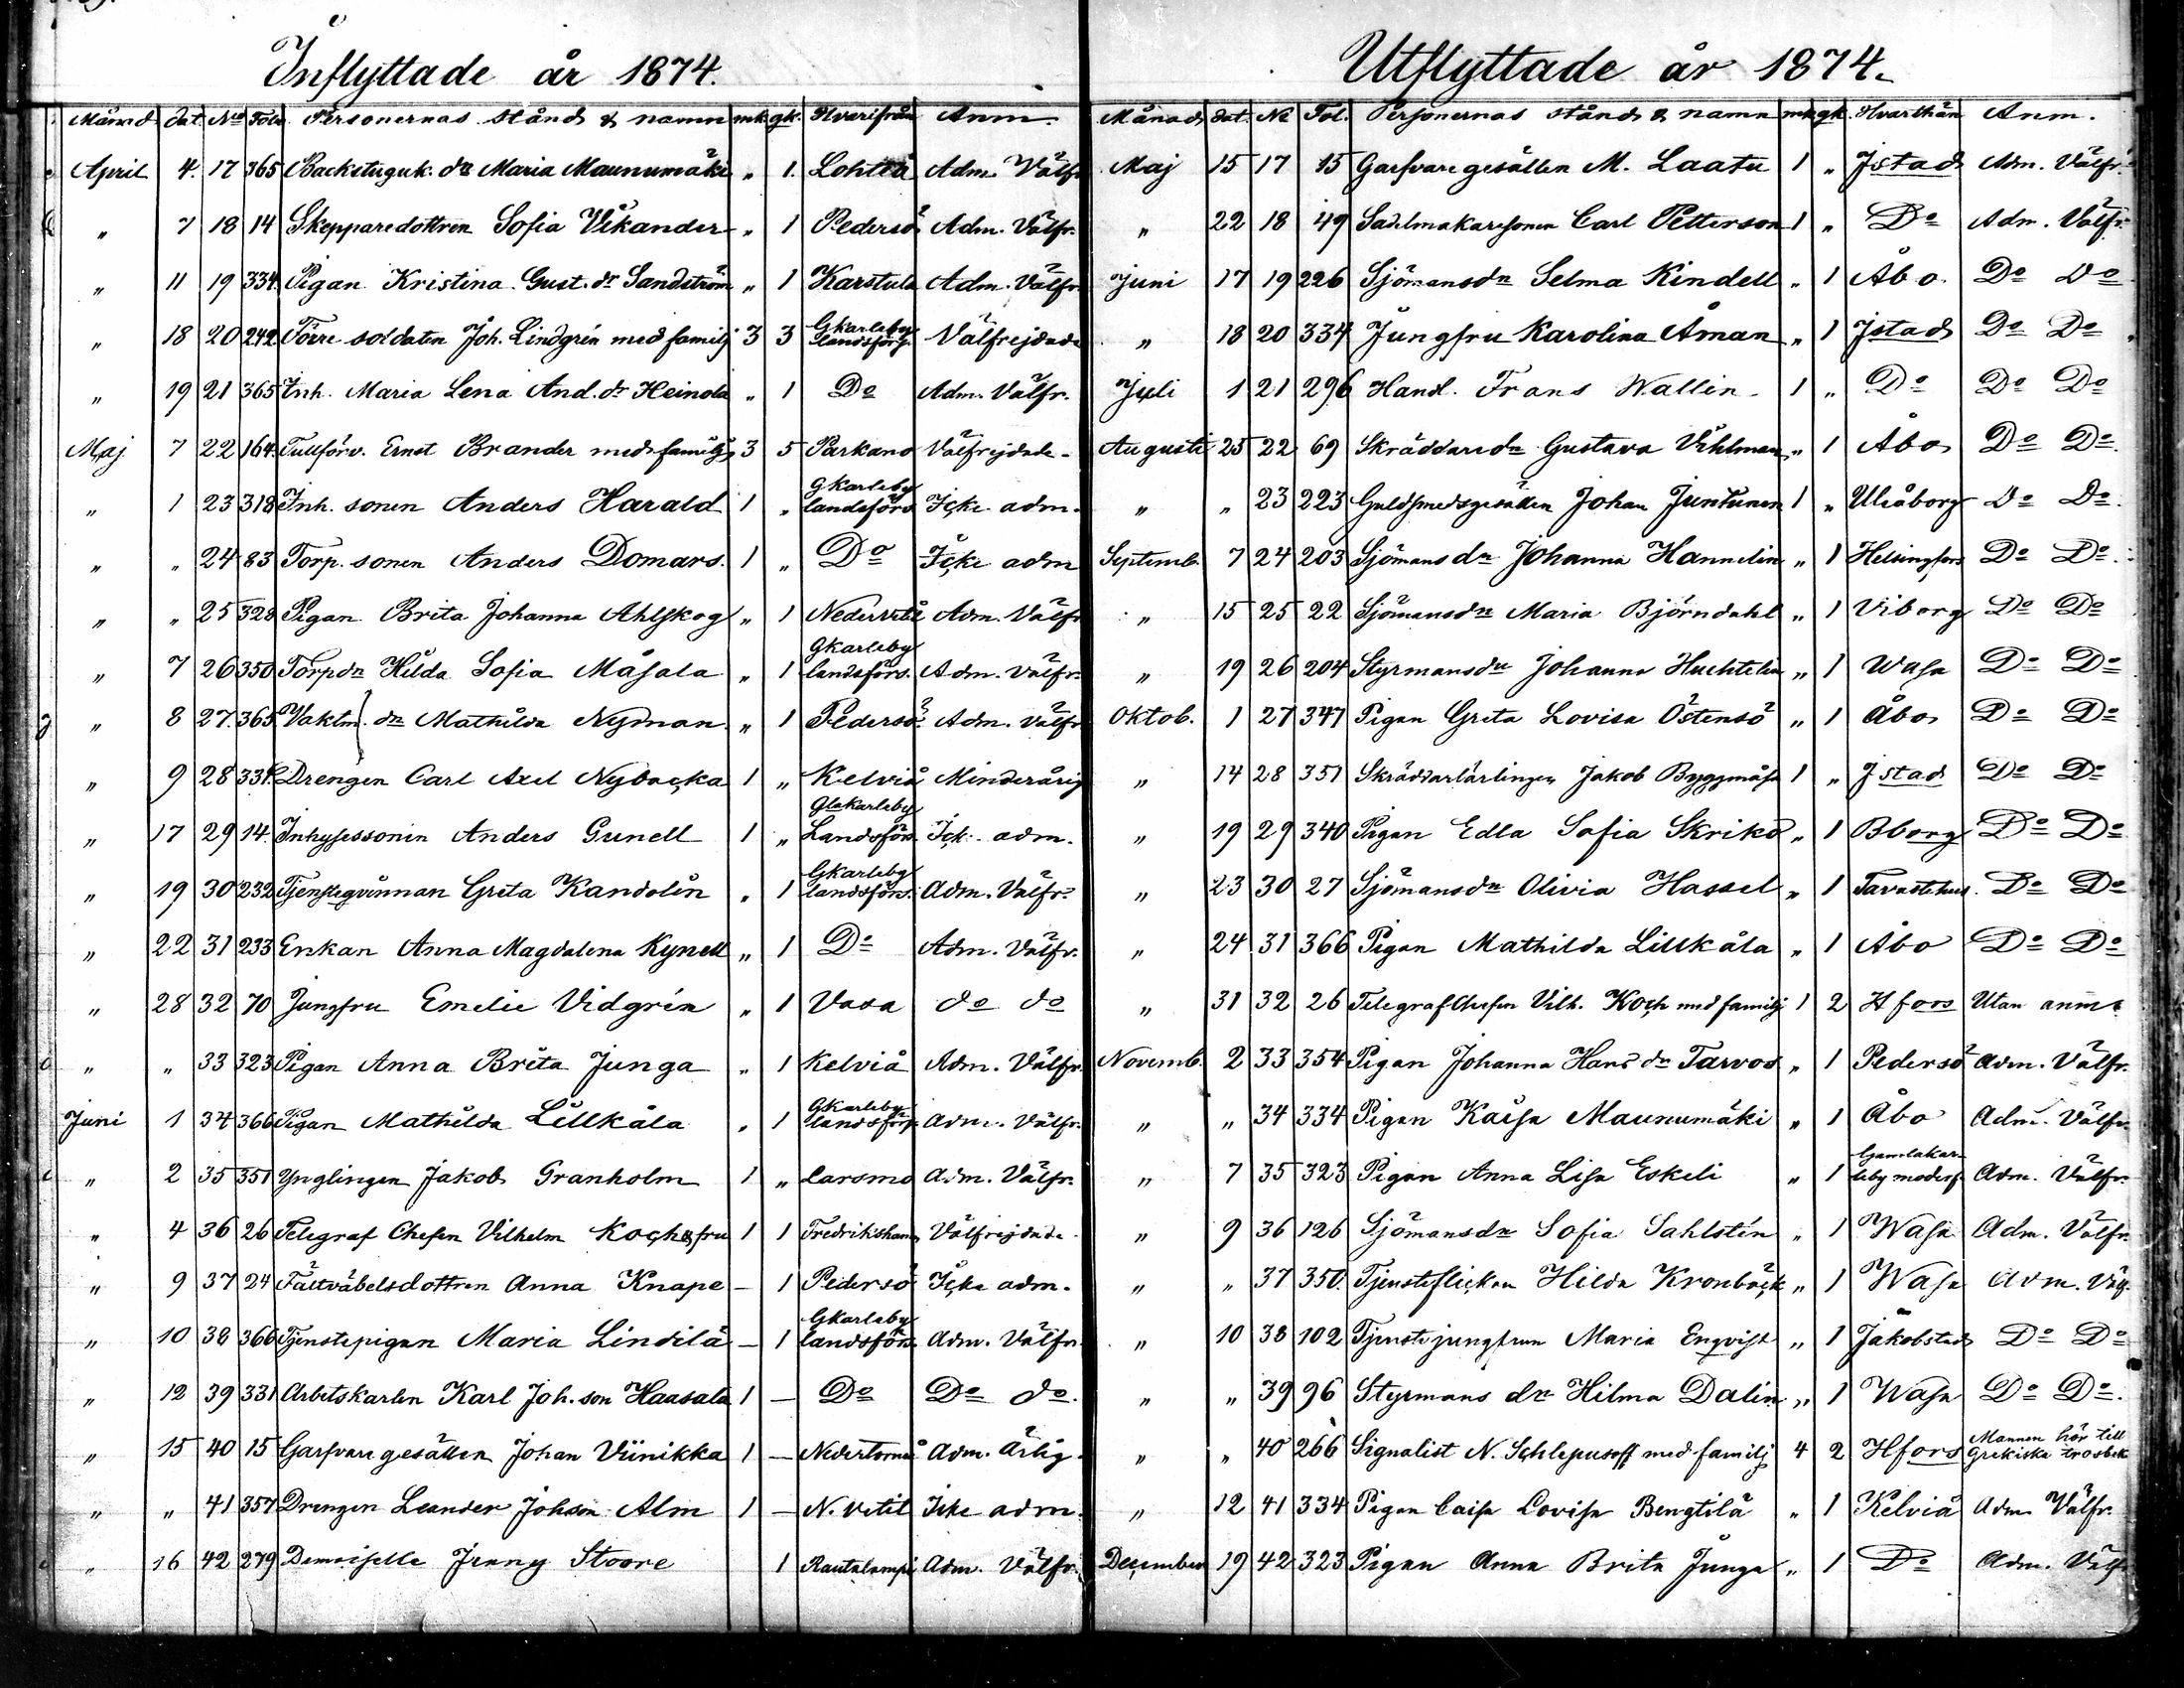 Inflyttade år 1874.
Månad dat. No Folio Personernas stånd & namn mk. qk. Hvarifrån Anm.
April 4. 17 365 Backstuguk. dr Maria Maunumäki " 1. Lohteå Adm. Välfr.
" 7 18 14 Skepparedottren Sofia Vikander " 1 Pedersö Adm. Välfr.
" 11 19 334 Pigan Kristina Gust. dr Sandström " 1 Karstula Adm. Välfr.
" 18 20 242 Förre soldaten Joh. Lindgrén med familj 3 3 Gkarleby landsförs. Välfrejdade
" 19 21 365 Inh. Maria Lena And. dr Heinola " 1 Do Adm. Välfr.
Maj 7 22 164 Tullförv. Ernst Brander med familj 3 5 Parkano Välfrejdade
" 1 23 318 Inh. sonen Anders Harald 1 " Gkarleby landsförs Icke adm.
" " 24 83 Torp. sonen Anders Domars. 1 " Do Icke adm
" " 25 328 Pigan Brita Johanna Ahlskog " 1 Nedervetil Adm. Välfr
" 7 26 350 Torpdn Hilda Sofia Måsala " 1 Gkarleby landsförs. Adm. Välfr.
" 8 27. 365 Vaktm. dn Mathilda Nyman " 1 Pedersö Adm. Välfr
" 9 28 334 Drengen Carl Axel Nybacka 1 " Kelviå Minderårig
" 17 29 14. Inhysessonen Anders Gunell 1 " Glakarleby Landsförs. Ick. adm.
" 19 30 232 Tjensteqvinnan Greta Kandolin " 1 Gkarleby landsförs. Adm. Välfr.
" 22 31 233 Enkan Anna Magdalena Kynell " 1 Do Adm. Välfr.
" 28 32 70 Jungfru Emelie Vidgrén " 1 Vasa do do
" " 33 323 Pigan Anna Brita Junga " 1 Kelviå Adm. Välfr.
Juni 1 34 366 Pigan Mathilda Lillkåla " 1 Gkarleby landsförs. Adm. Välfr.
" 2 35 351 Ynglingen Jakob Granholm 1 " Larsmo Adm. Välfr.
" 4 36 26 Telegraf Chefen Vilhelm Koch & fru 1 1 Fredrikshamn Välfrejdade
" 9 37 24 Fältväbelsdottren Anna Knape — 1 Pedersö Icke adm.
" 10 38 366 Tjenstepigan Maria Lindilä — 1 Gkarleby landsförs. Adm. Välfr.
" 12 39 331 Arbetskarlen Karl Joh. son Haasala 1 — Do Do do.
" 15 40 15 Garfvaregesällen Johan Viinikka 1 — Nedertorneå Adm. Ärlig
" " 41 357 Drengen Leander Johsson Alm 1 — N. vetil Icke adm.
" 16 42 279 Demoiselle Jenny Stoore 1 Rautalampi Adm. Välfr.
Utflyttade år 1874.
Månad dat. No Fol. Personernas stånd & namn mk qk. Hvarthän Anm.
Maj 15 17 15 Garfvaregesällen M. Laatu 1 " Jstad Adm. Välfr.
" 22 18 49 Sadelmakarssonen Carl Petterson 1 " Do Adm. Välfr.
Juni 17 19 226 Sjömansdn Selma Kindell " 1 Åbo Do Do
" 18 20 334 Jungfru Karolina Åman " 1 Jstad Do Do
Juli 1 21 296 Hand. Frans Wallin 1 " Do Do Do
Augusti 25 22 69 Skräddaredn Gustava Vihlman " 1 Åbo Do Do
" " 23 223 Guldsmedsgesällen Johan Juntunen 1 " Uleåborg Do Do.
Septemb. 7 24 203 Sjömansdn Johanna Hannelin " 1 Helsingfors Do Do.
" 15 25 22 Sjömansdn Maria Björndahl " 1 Viborg Do Do
" 19 26 204 Styrmansdn Johanna Huchtelin " 1 Wasa Do Do
Oktob. 1 27 347 Pigan Greta Lovisa Östensö " 1 Åbo Do Do
" 14 28 351 Skräddarlärlingen Jakob Byggmäs. 1 " Jstad Do Do
" 19 29 340 Pigan Edla Sofia Skrikö " 1 Bborg Do Do
" 23 30 27 Sjömansdn Olivia Hassel " 1 Tavastehus Do Do
" 24 31 366 Pigan Mathilda Lillkåla " 1 Åbo Do Do
" 31 32 26 Telegrafchefen Vilh. Koch med familj 1 2 Hfors Utan anm.
Novemb. 2 33 354 Pigan Johanna Hans dn Tarvos " 1 Pedersö Adm. Välfr.
" " 34 334 Pigan Kaisa Maunumäki " 1 Åbo Adm. Välfr.
" 7 35 323 Pigan Anna Lisa Eskeli " 1 Gamlakarleby moderf. Adm. Välfr.
" 9 36 126 Sjömansdn Sofia Sahlstén " 1 Wasa Adm. Välfr.
" " 37 350. Tjensteflickan Hilda Kronbäck " 1 Wasa Adm. Välf.
" 10 38 102 Tjenstejungfrun Maria Enqvist " 1 Jakobstad Do Do
" " 39 96 Styrmans dn Hilma Dalin " 1 Wasa Do Do.
" " 40 266 Signalist N. Schlepusoff med familj 4 2 Hfors Mannen hör till Grekiska trosbek
" 12 41 334 Pigan Caisa Lovisa Bengtilä " 1 Kelviå Adm Välfr.
December 19 42 323 Pigan Anna Brita Junga " 1 Do Adm. Välf